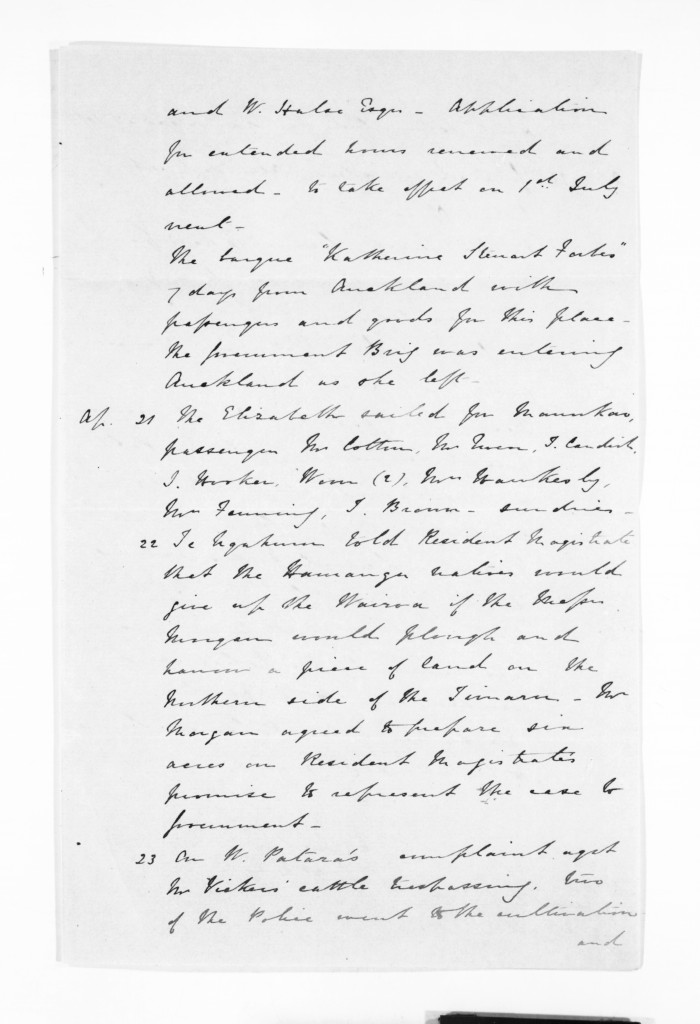 and W. Halse Esqr - Application
for extended hours renewed and
allowed - to take effect on 1st July
next -
The barque "Katherine Stewart Forbes"
7 days from Auckland with
passengers and goods for this place -
The Government Brig was entering
Auckland as she left -
Ap. 21 The Elizabeth sailed for Manukau,
passengers Mr Cotton, Mr, J. Candish,
J. Hooker, (2), Mrs Hawkesby,
Mrs Fenning, J. Brown - sundries -
22 Te Ngahuru told Resident Magistrate
that the Hamanga natives would
give up the Wairoa if the Messrs
Morgan would plough and
harrow a piece of land on the
Northern side of the Timaru - Mr
Morgan agreed to prepare six
acres on Resident Magistrates
promise to represent the case to
Government -
23 On W. Patara's complaint agst
Mr Vickers' cattle trespassing, two
of the Police went to the cultivation
and